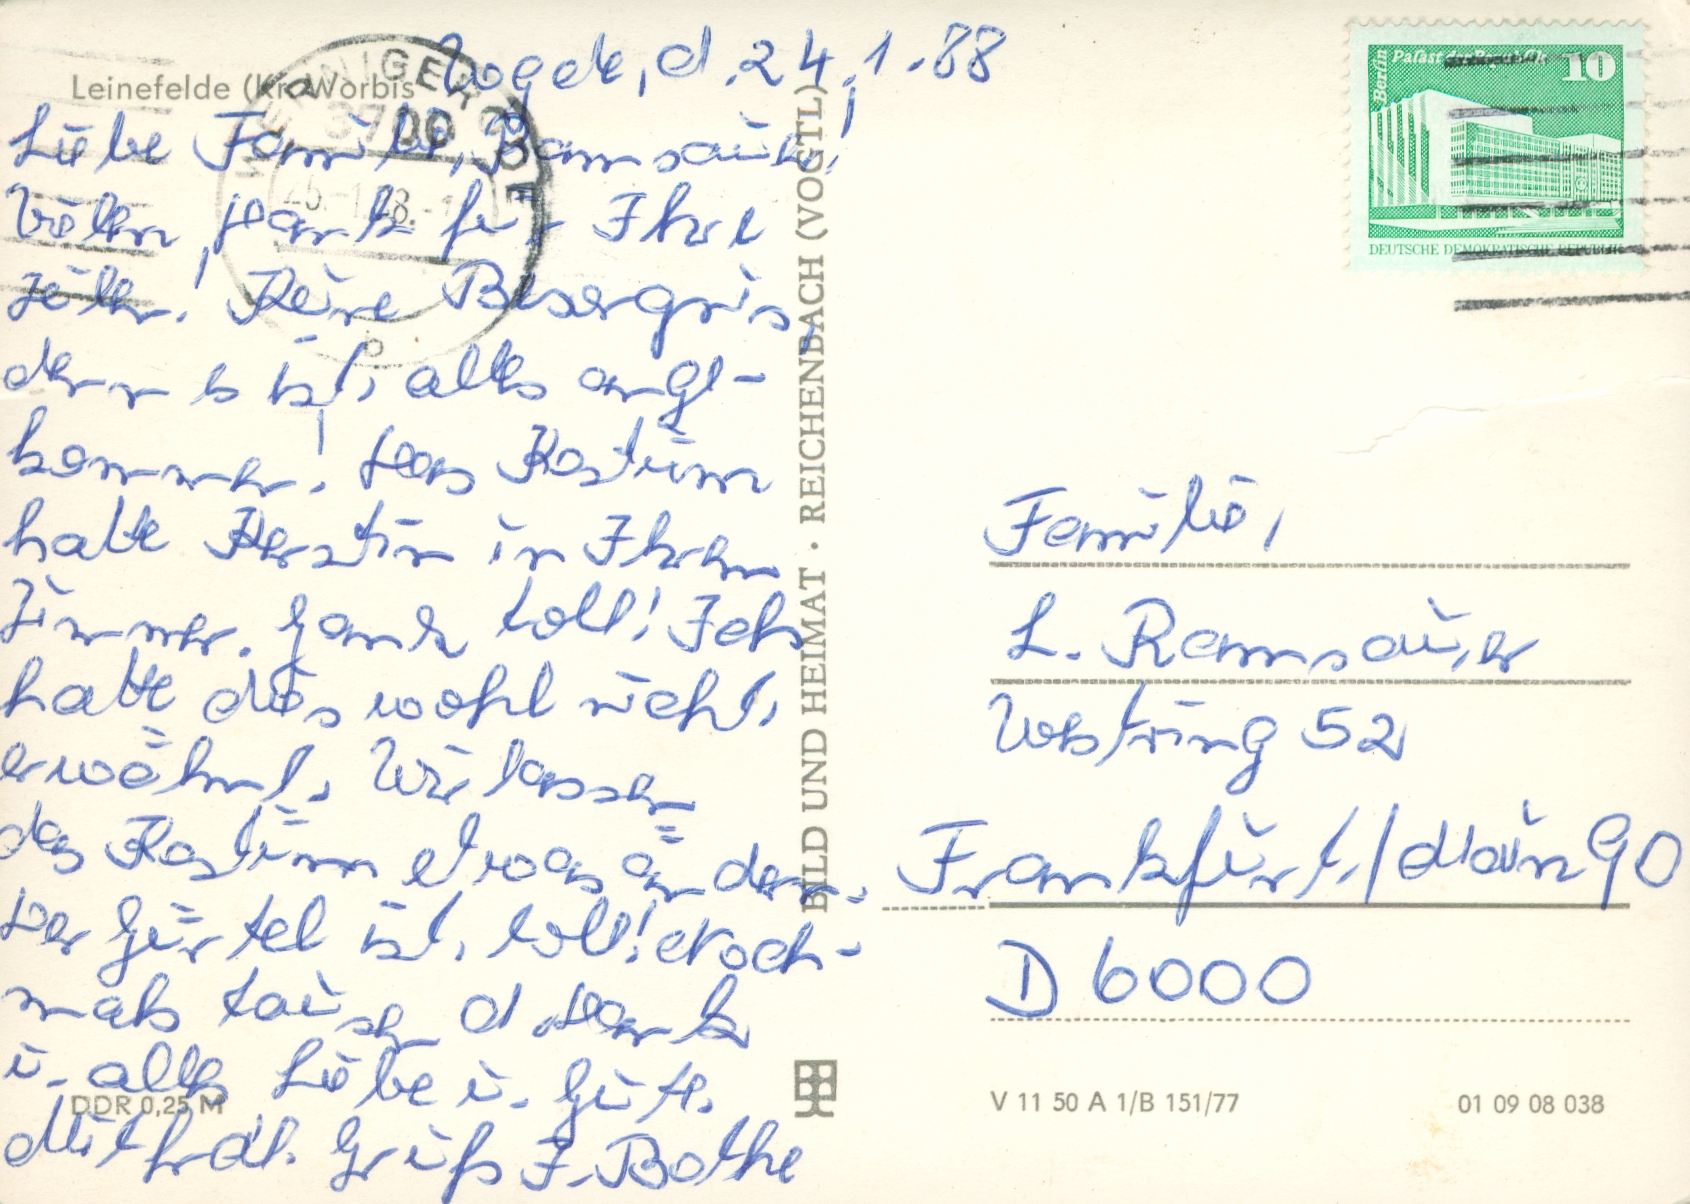 Leinefelde (Kr. Worbis
WERNIGERODE
3700
25.-1.88.-1
b
d. 24.1.88
Liebe Familie, Ramsauer!
Vielen, Dank für Ihre
Zeilen! Keine Besorgnis,
denn es ist, alles ange-
kommen! Das Kostüm
hatte Kerstin in Ihrem
Zimmer. Ganz toll! Ich
hatte dies wohl nicht,
erwähnt. Wir lassen
das Kostüm etwas ändern.
Der Gürtel ist, toll! Noch-
mals tausend Dank
u. alles Liebe u. Gute.
Mit frdl. Gruß I. Bothe
DDR 0,25 M
BILD UND HEIMAT · REICHENBACH (VOGTL)
Berlin
Palast der Republik
10
DEUTSCHE DEMOKRATISCHE REPUBLIK
Familie,
L. Ramsauer
Westring 52
Frankfurt./Main 90
D 6000
V 11 50 A 1/B 151/77
01 09 08 038